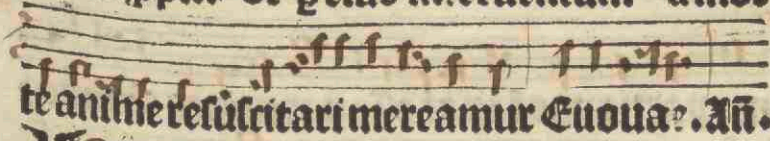 te anime resuscitari mereamur Euouae. Añ.